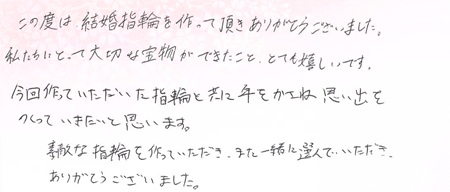 この度は、結婚指輪を作って頂きありがとうございました。
私たちにとって大切な宝物ができたこと、とても嬉しいです。
今回作っていただいた指輪と共に年をかさね思い出を
つくっていきたいと思います。
素敵な指輪を作っていただき、また一緒に選んでいただき、
ありがとうございました。